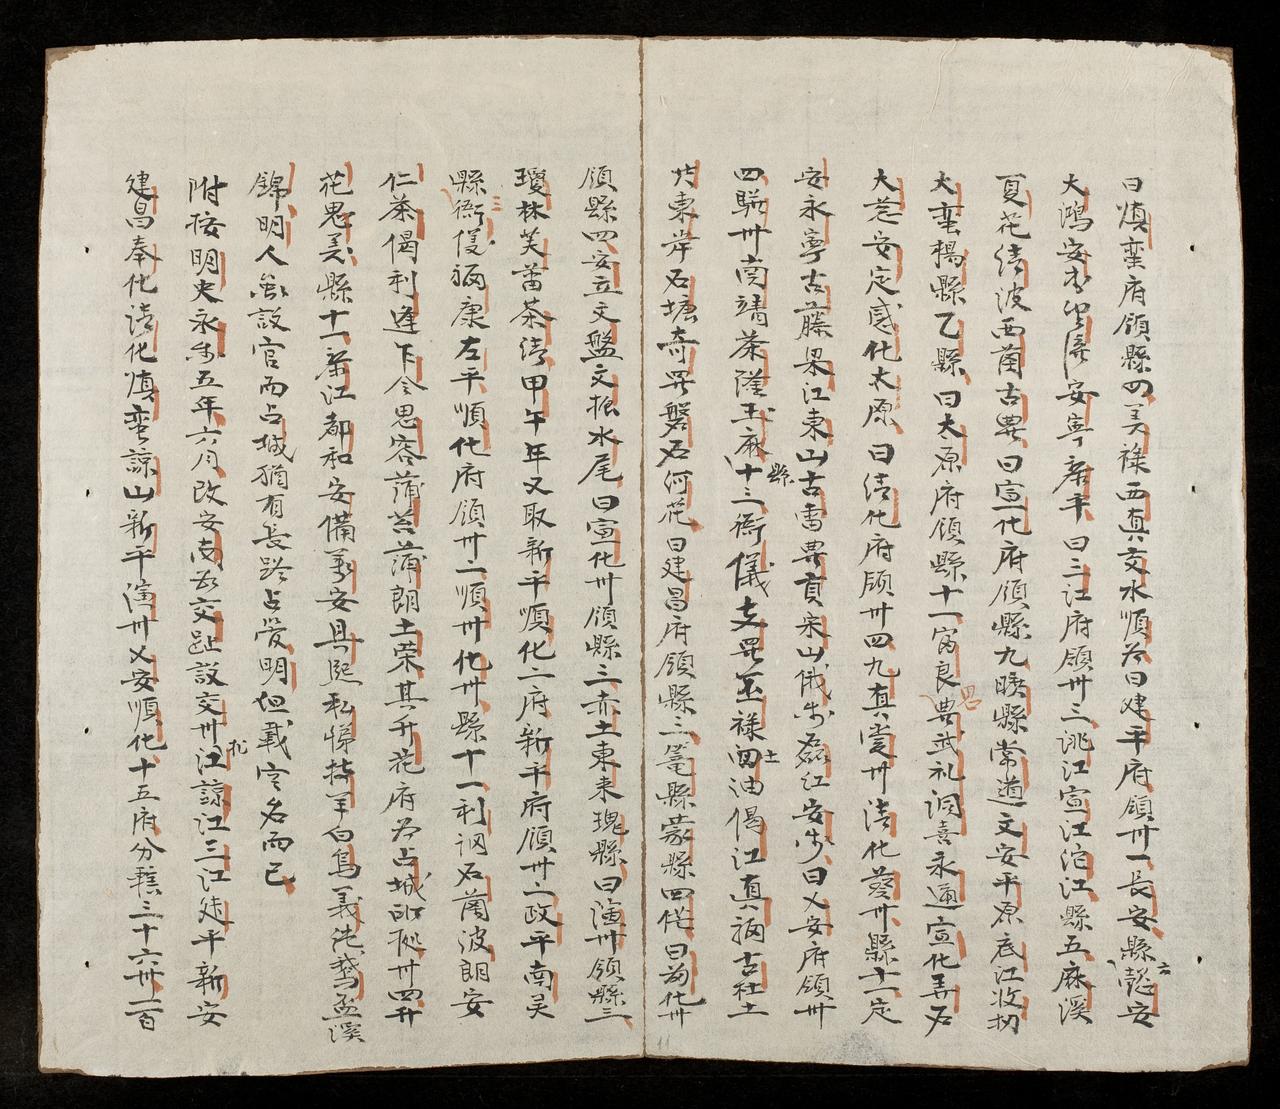 曰鎮蛮府領縣四美祿西真交水順為曰建平府領卅一長安縣六懿安
大灣安本望瀛安寧廣平曰三江府領卅三洮江宣江沱江縣五麻溪
夏花清波西蘭古農曰宣化府領縣九曠縣當道文安平原底江收物
大蛮楊縣乙縣曰太原府領縣十一富良思農武礼洞喜永通宣化弄石
大慈安定感化太原曰清化府領卅四九真愛卅清化葵卅縣十一定
安永寧古藤梁江東山古雷農貢宋山俄步磊江安步曰乂安府領卅
四驩卅南靖茶隆玉麻縣十三衙儀支羅丕祿土油偈江真福古社土
黃東岸石塘奇羅磐石河花曰建昌府領縣三篭縣蒙縣四侊曰為化卅
領縣四安立文盤文振水尾曰宣化卅領縣三赤土東來瑰縣曰演卅領縣三
瓊林芙蕾茶清甲午年又取新平順化二府新平府領卅二政平南灵
縣三衙儀福康左平順化府領卅二順卅化卅縣十一利調石蘭波朗安
仁茶偈利逢下令思容蒲苔蒲朗土荣其升花府为占城旧地卅四升
花思義縣十一黎江都和安備萬安具熙私悌持羊白烏義純鵝盃溪
錦明人雖設官而占城猶有長跨占管明但載空名而已
附按明史永樂五年六月改安南為交趾設交卅北江諒江三江建平新安
建昌奉化清化鎮蛮諒山新平演卅乂安順化十五府分轄三十六卅一百